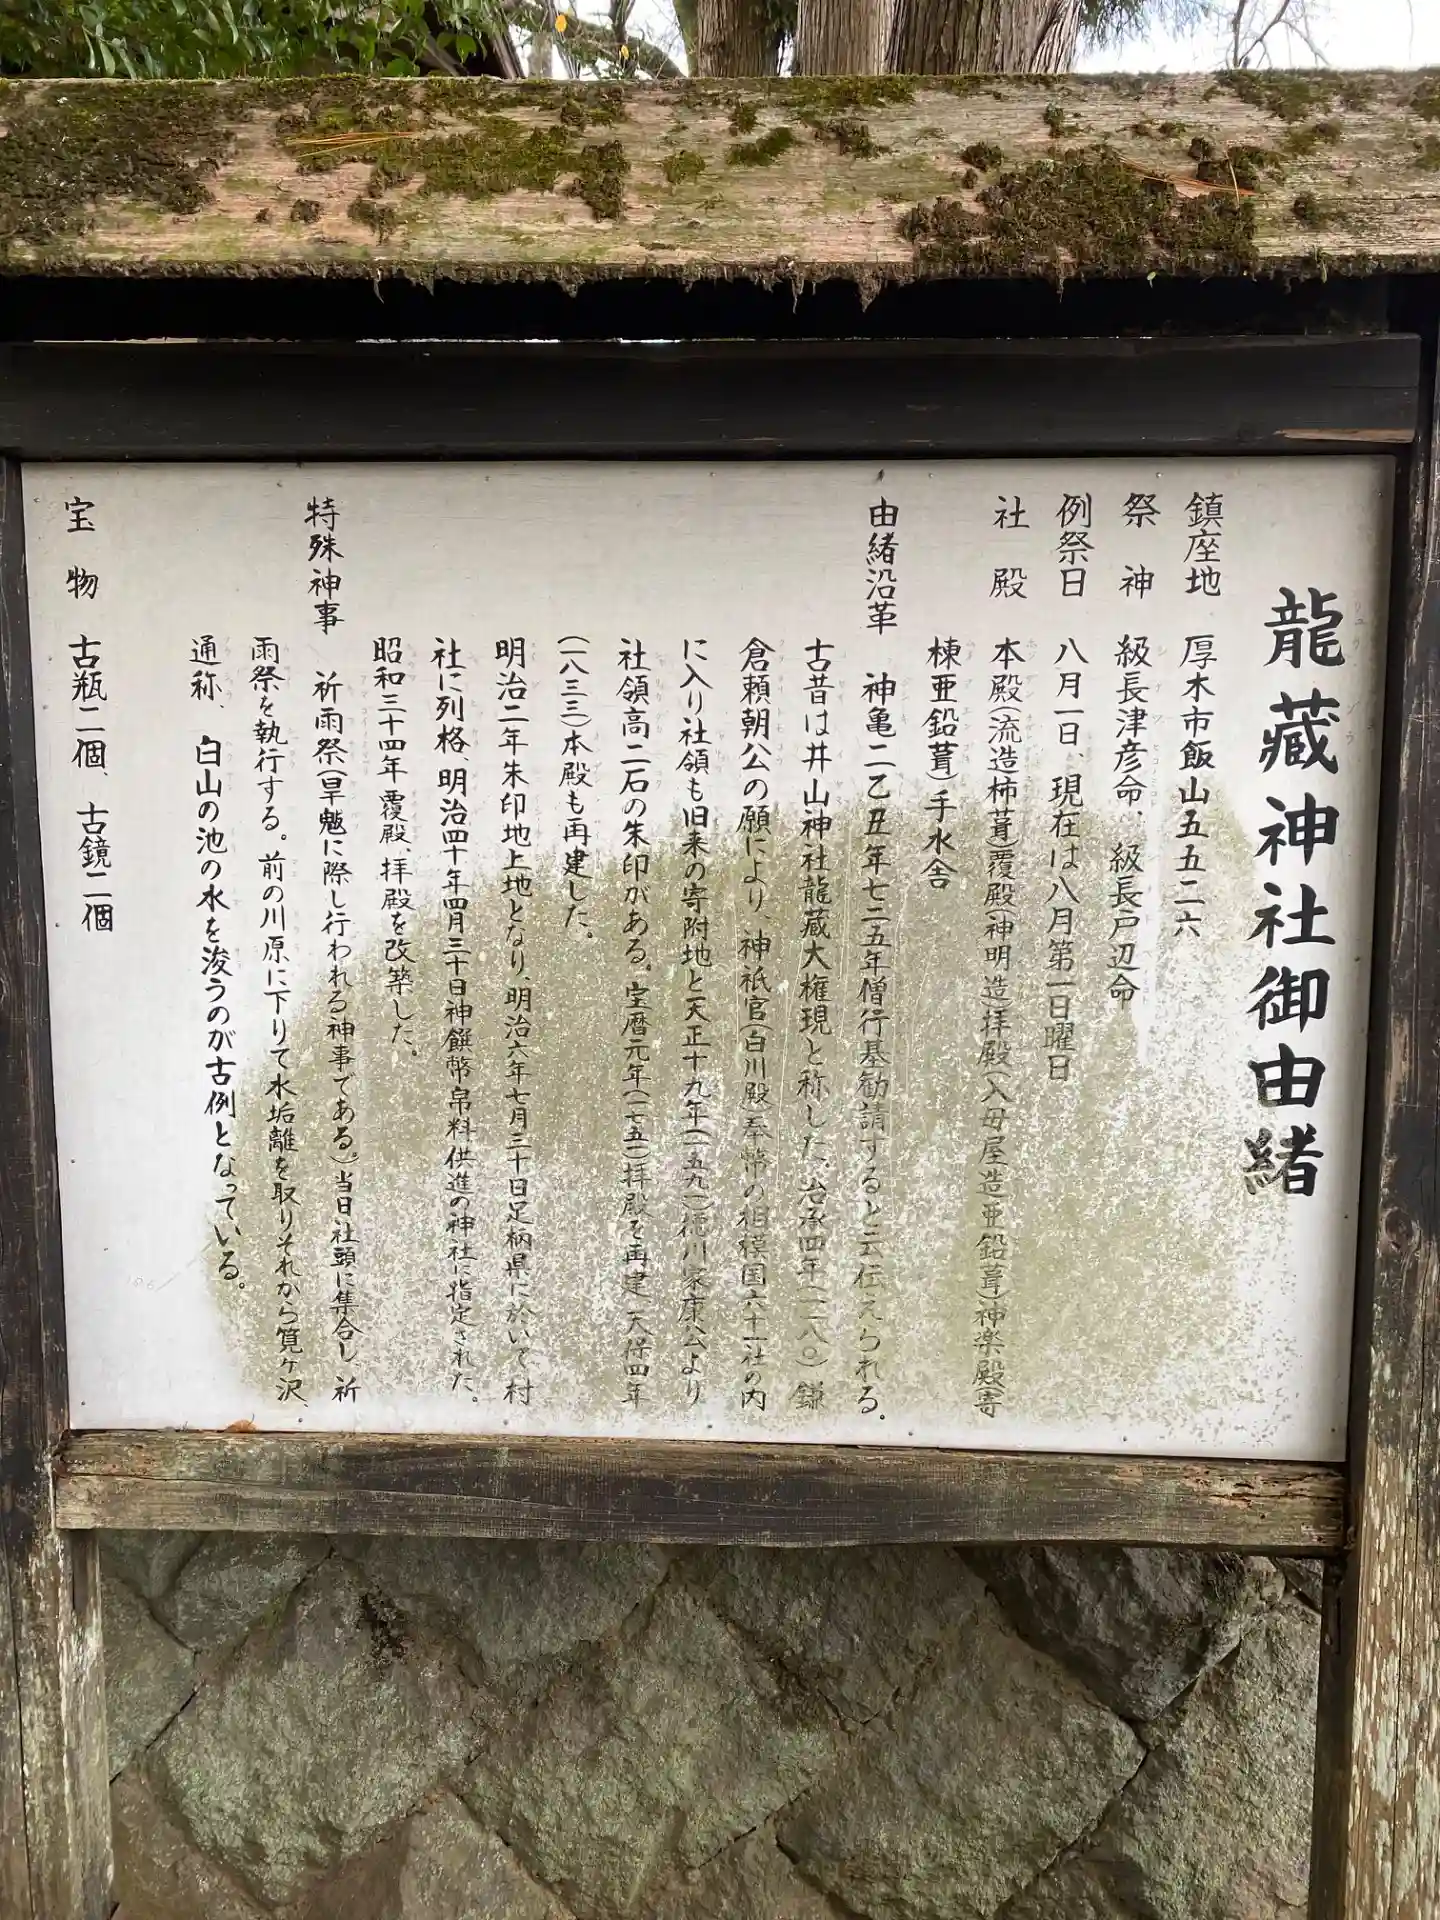 龍蔵神社御由緒
鎮座地 厚木市飯山五五二六
祭神 級長津彦命、級長戸辺命
例祭日 八月一日、現在は八月第一日曜日
社殿 本殿(流造柿葺)覆殿(神明造)拝殿(入母屋造亜鉛葺)神楽殿(寄
棟亜鉛葺)手水舎
由緒沿革 神亀二乙丑年七二五年僧行基勧請すると云伝えられる。
古昔は井山神社龍蔵大権現と称した。治承四年(一一八〇)鎌
倉頼朝公の願により、神祇官(白川殿)奉幣の相模国六十一社の内
に入り社領も旧来の寄附地と天正十九年(一五九一)徳川家康公より
社領高二石の朱印がある。宝暦元年(一七五一)拝殿を再建 天保四年
(一八三三)本殿も再建した。
明治二年朱印地上地となり、明治六年七月三十日足柄県に於いて村
社に列格、明治四十年四月三十日神饌幣帛料供進の神社に指定された。
昭和三十四年覆殿、拝殿を改築した。
特殊神事 祈雨祭(旱魃に際し行われる神事である。)当日社頭に集合し、祈
雨祭を執行する。前の川原に下りて水垢離を取りそれから筧ヶ沢、
通称、白山の池の水を浚うのが古例となっている。
宝物 古瓶二個、古鏡二個